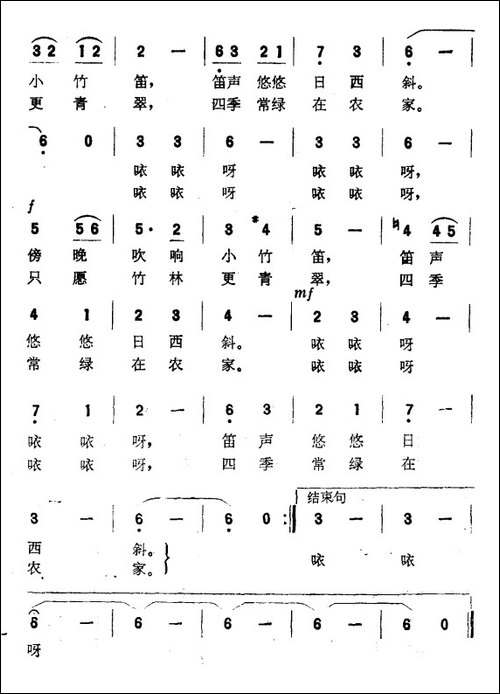 3 2 1 2 | 2 – | 6 3 2 1 | 7 3 | 6 –
小 竹 笛, 笛声 悠悠 日 西 斜。
更 青 翠, 四季 常绿 在 农 家。
6 0 | 3 3 | 6 – | 3 3 | 6 –
咴 咴 呀 咴 咴 呀,
咴 咴 呀 咴 咴 呀,
f
5 5 6 | 5· 2 | 3 #4 | 5 – | ♮4 4 5
傍 晚 吹 响 小 竹 笛, 笛 声
只 愿 竹 林 更 青 翠, 四 季
mf
4 1 | 2 3 | 4 – | 2 3 | 4 –
悠 悠 日 西 斜。 咴 咴 呀
常 绿 在 农 家。 咴 咴 呀
7 1 | 2 – | 6 3 | 2 1 | 7 –
咴 咴 呀, 笛 声 悠 悠 日
咴 咴 呀, 四 季 常 绿 在
结束句
3 – | 6 – | 6 0 :‖ 3 – | 3 –
西 斜。 咴 咴
农 家。
6 – | 6 – | 6 – | 6 – | 6 0 ‖
呀